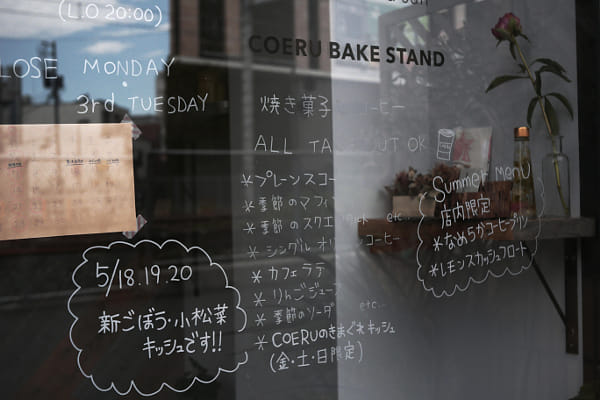 (L.O 20:00)
LOSE MONDAY
・
3rd TUESDAY
COERU BAKE STAND
焼き菓子 コーヒー
ALL TAKE OUT OK
*プレーンスコー
*季節のマフィ
*季節のスクエ ck etc
*シングルオリ コーヒー
*カフェラテ
*りんごジュー
*季節のソーダ etc...
*COERUのきまぐれキッシュ
(金・土・日限定)
5/18.19.20
新ごぼう・小松菜
キッシュです!!
Summer MENU
店内限定
*なめらかコーヒープリン
*レモンスカッシュフロート